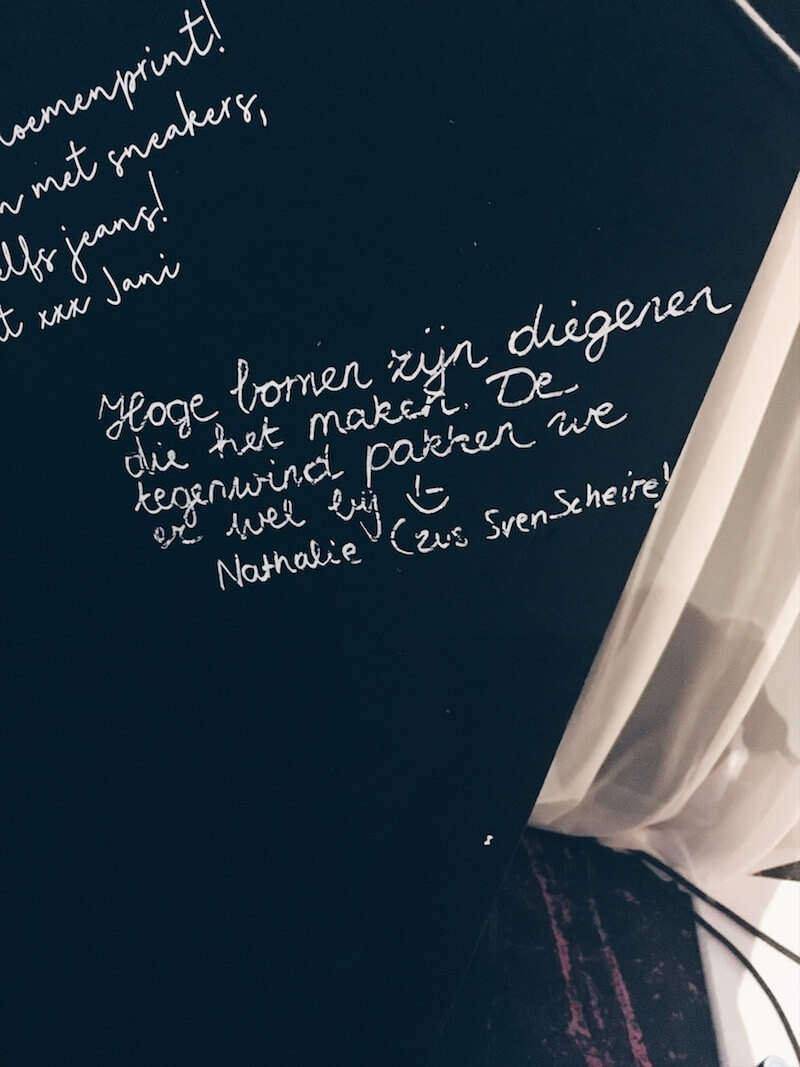 loemenprint!
n met sneakers,
elfs jeans!
t xxx Jani
Hoge bomen zijn diegenen
die het maken. De
tegenwind pakken we
er wel bij :-)
Nathalie (zus Sven Scheire!